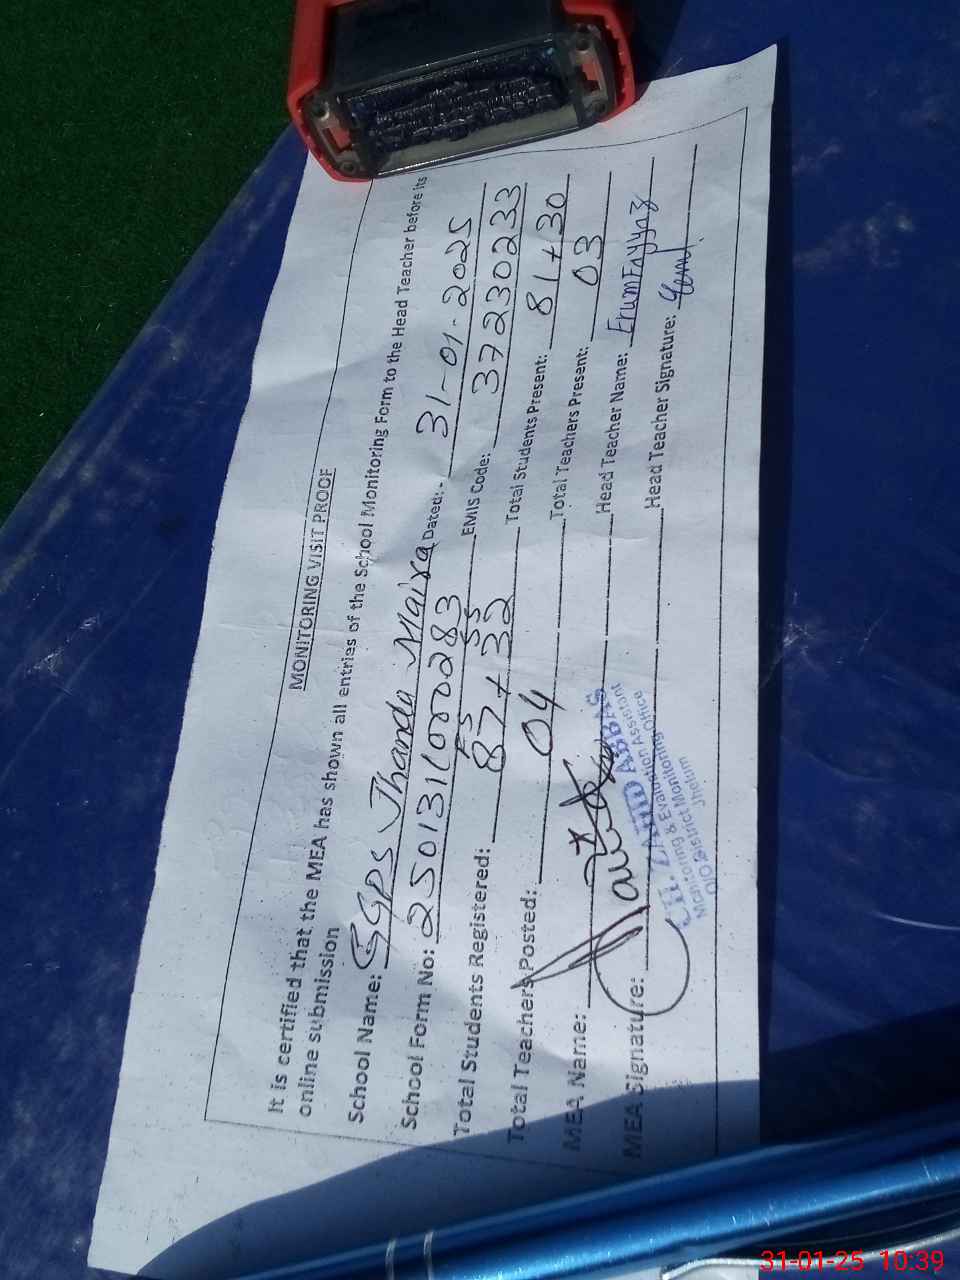 MONITORING VISIT PROOF
It is certified that the MEA has shown all entries of the School Monitoring Form to the Head Teacher before its
online submission
School Name: GGPS Jhanda Maira Dated:- 31-01-2025
School Form No: 2501311000283 EMIS Code: 37230233
Total Students Registered: 87 + 32 Total Students Present: 81 + 30
Total Teachers Posted: 04 Total Teachers Present: 03
MEA Name: Head Teacher Name: Erum Fayyaz
MEA Signature: Head Teacher Signature:
CH. ZAHID ABBAS
Monitoring & Evaluation Assistant
O/O District Monitoring Office
Jhelum
31-01-25 10:39